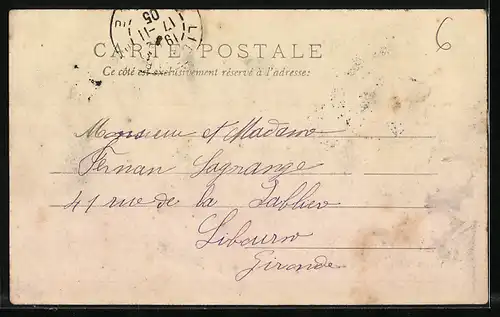 6
CARTE POSTALE
Ce côté est exclusivement réservé à l'adresse:
Monsieur et Madame
Fernan Lagrange
41 rue de la
Libourne
Gironde